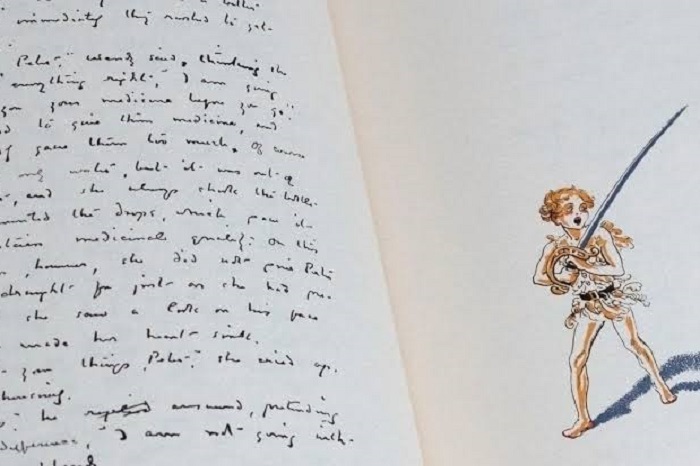 immediately they rushed to get
Peter," Wendy said, thinking she
everything right, "I am going
you your medicine before you go."
to give them medicine, and
gave them too much. Of course
only water, but it was out of
and she always shook the bottle
counted the drops, which gave it
medicinal quality. On this
however, she did not give Peter
draught for just as she had pre-
she saw a look on his face
made her heart sink.
your things, Peter," she cried
he answered, pretending
indifference, "I am not going with